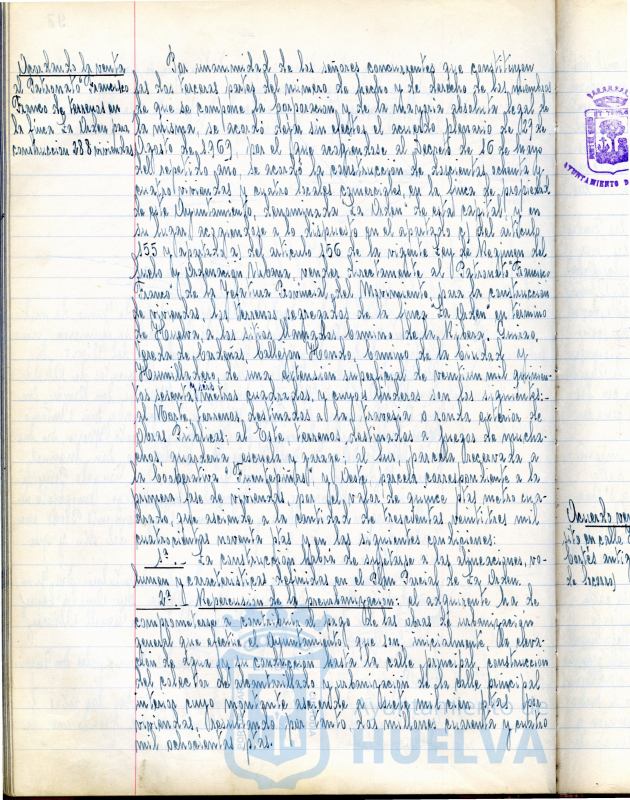 Acordando la venta
al Patronato "Francisco
Franco de terrenos en
la finca La Orden para
construcción 288 viviendas
Por unanimidad de los señores concurrentes que constituyen
las dos terceras partes del número de hecho y de derecho de los miembros
de que se compone la Corporación, y de la mayoría absoluta legal de
la misma, se acordó dejar sin efectos el acuerdo plenario de 29 de
Agosto de 1969, por el que acogiéndose al Decreto de 16 de mayo
del repetido año, se acordó la construcción de doscientas ochenta y
cuatro viviendas y cuatro locales comerciales, en la finca de propiedad
de este Ayuntamiento, denominada "La Orden" de esta capital. Y en
su lugar, acogiéndose a lo dispuesto en el apartado c) del artículo
155 y apartado a) del artículo 156 de la vigente Ley de Régimen del
Suelo y Ordenación Urbana, vender directamente al Patronato "Francisco
Franco" de la Jefatura Provincial del Movimiento, para la construcción
de viviendas, los terrenos segregados de la finca "La Orden" en término
de Huelva, a los sitios llamados Camino de la Ribera,
Vereda de Callejón Hondo, Camino de la Cinta y
Humilladero, de una extensión superficial de veintiún mil quinien-
tos sesenta y seis metros cuadrados, y cuyos linderos son los siguientes:-
al Norte, terrenos destinados a la travesía o ronda exterior de
Obras Públicas; al Este, terrenos destinados a juegos de mucha-
chos, guardería, escuela y garage; al Sur, parcela reservada a
la Cooperativa "Fuentepiña", y Oeste, parcela correspondiente a la
primera fase de viviendas, por el valor de quince ptas metro cua-
drado, que asciende a la cantidad de trescientas veintitres mil
cuatrocientas noventa ptas y en las siguientes condiciones:
1ª.- La construcción habrá de sujetarse a las alineaciones, vo-
lumen y características definidas en el Plan Parcial de La Orden.
2ª.- Repercusión de la preurbanización: el adquirente ha de
comprometerse a contribuir al pago de las obras de urbanización
general que efectúe el Ayuntamiento que son, inicialmente, la eleva-
ción de agua y su conducción hasta la calle principal, construcción
del colector de alcantarillado y urbanización de la calle principal
interior cuyo montante asciende a siete mil cien ptas por
viviendas, resultando por tanto, dos millones cuarenta y cuatro
mil ochocientas ptas.
AYUNTAMIENTO D
Acuerdo
sito en calle
Cortés
Ayuntamiento de
HUELVA